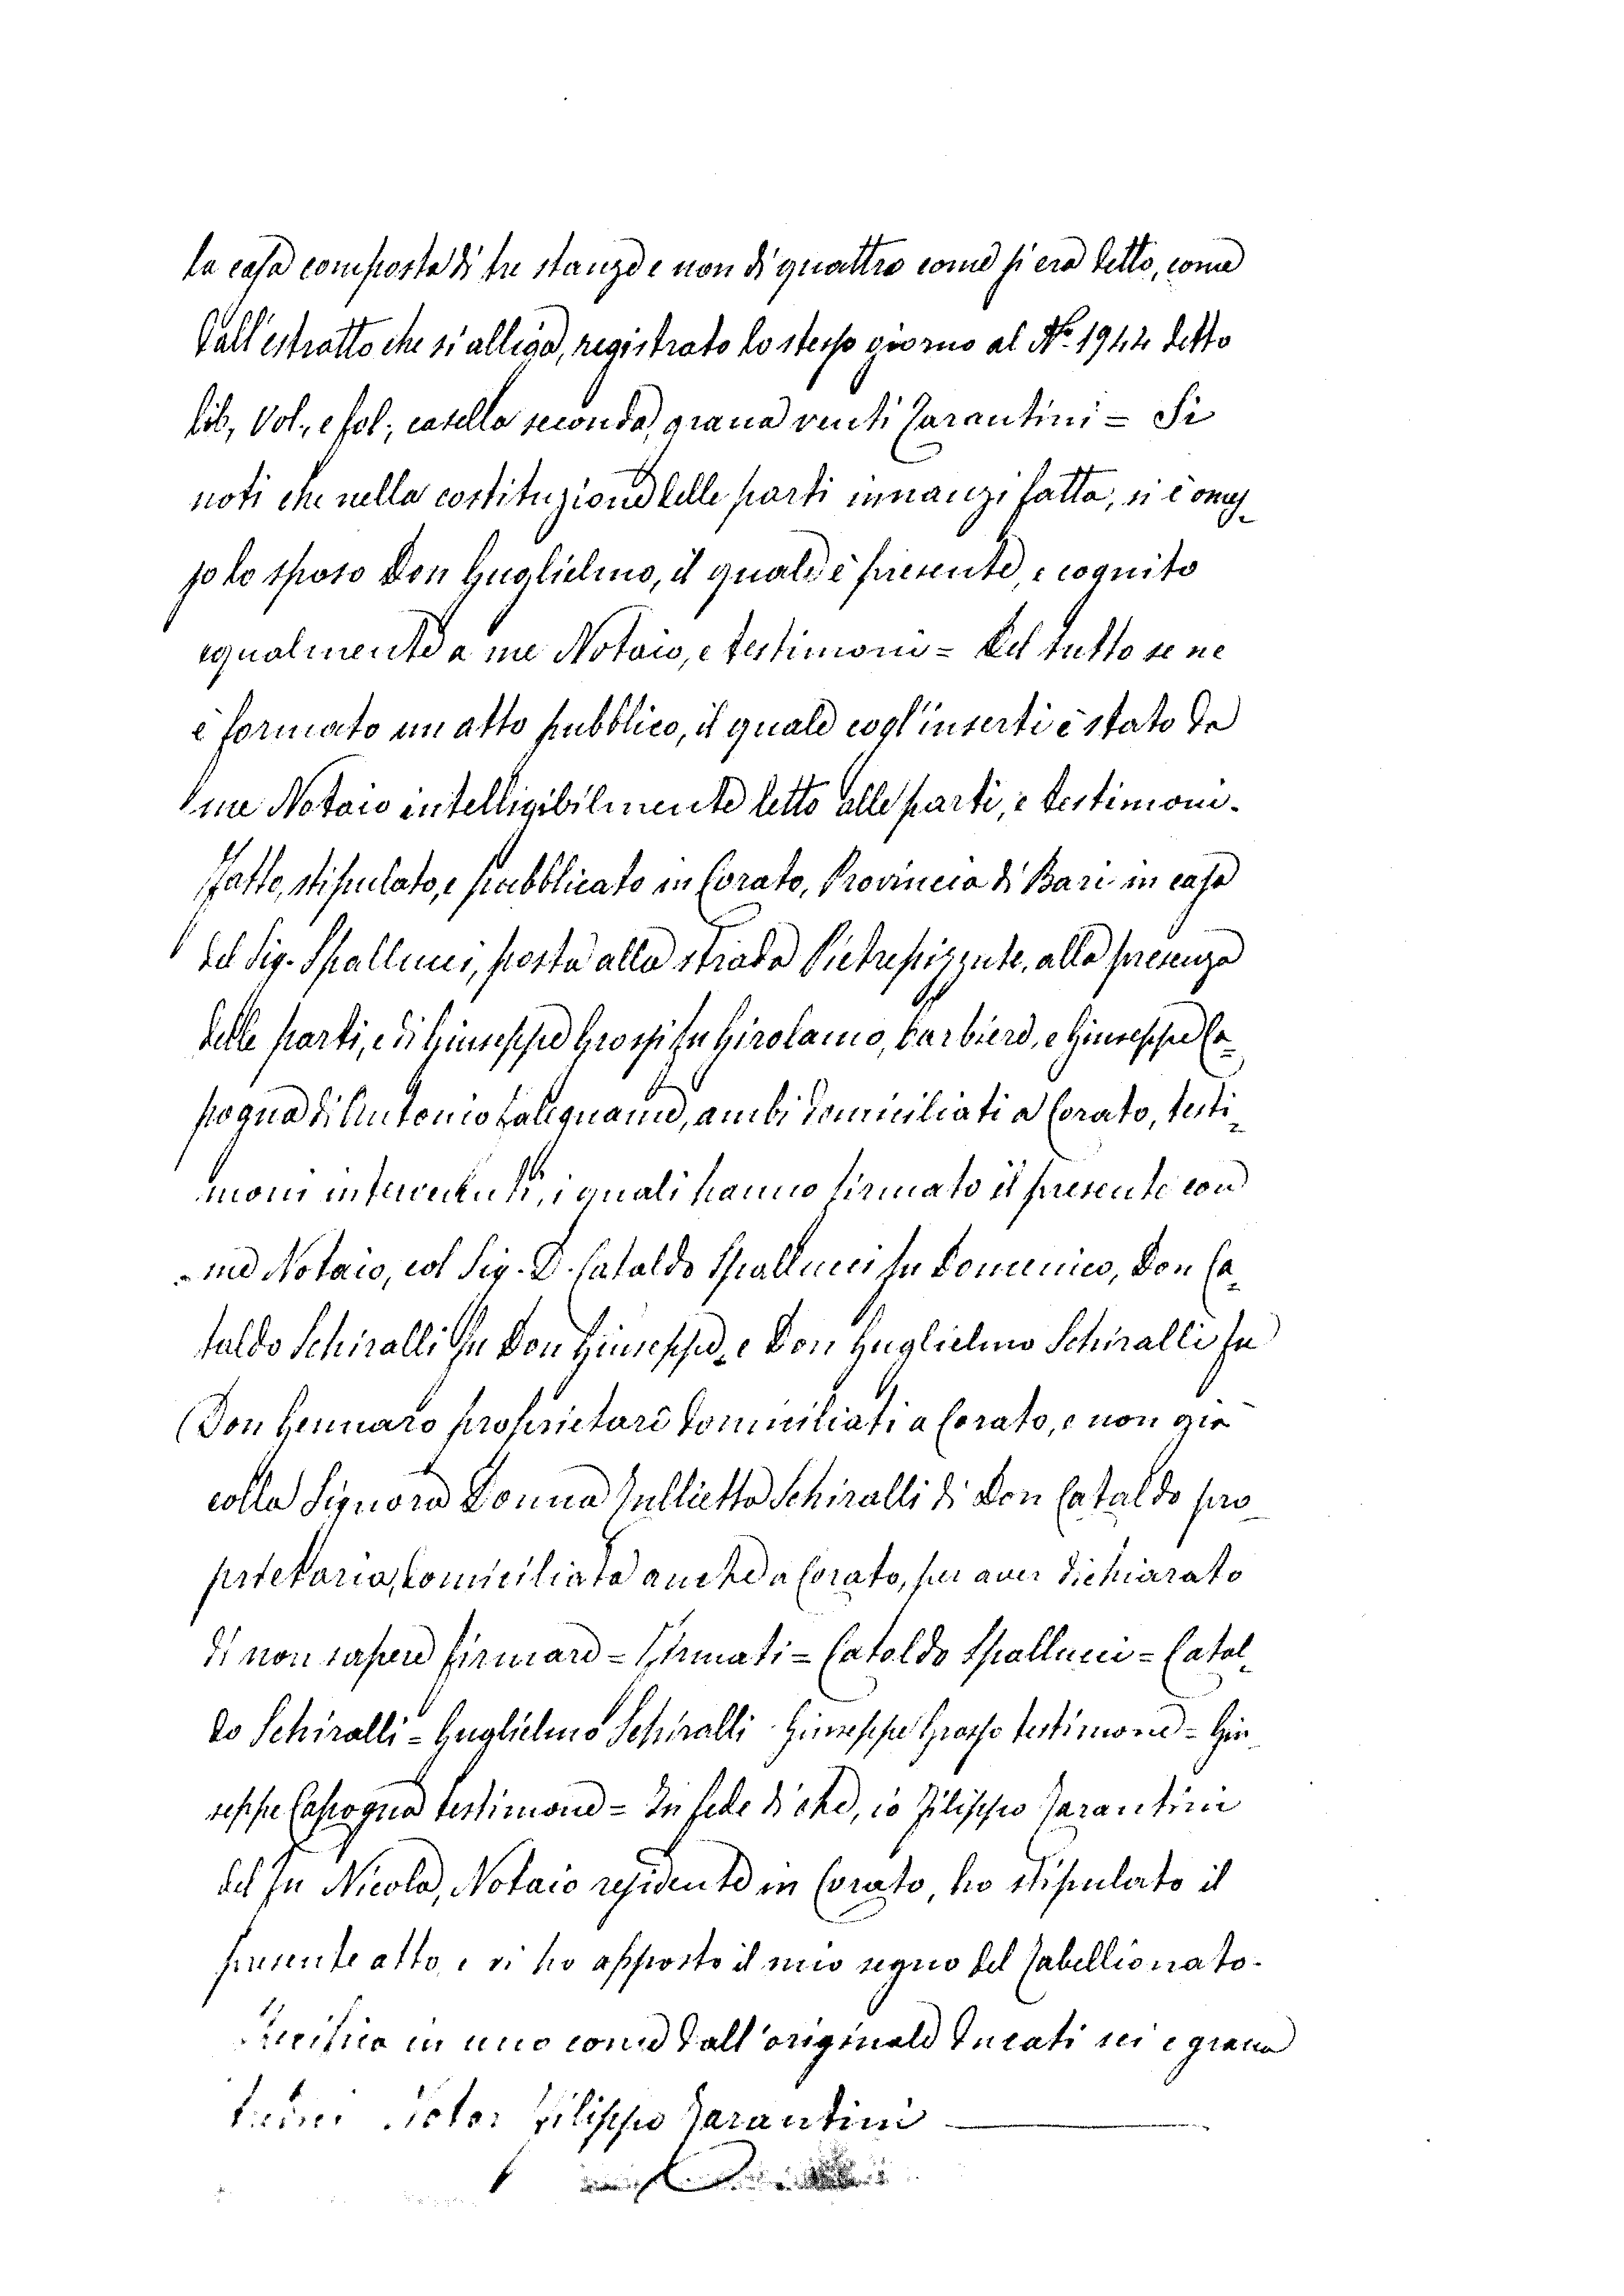 la casa composta di tre stanze e non di quattro come si era detto, come
dall'estratto che si alliga, registrato lo stesso giorno al N.º 1944 detto
lib., Vol., e fol., casella seconda, grana venti Tarantini = Si
noti che nella costituzione delle parti innanzi fatta, si è omes-
so lo sposo Don Guglielmo, il quale è presente, e cognito
egualmente a me Notaio, e testimoni = Del tutto se ne
è formato un atto pubblico, il quale cogl'inserti è stato da
me Notaio intelligibilmente letto alle parti, e testimoni.
Fatto, stipulato, e pubblicato in Corato, Provincia di Bari in casa
del Sig. Spallucci, posta alla strada Pietrepizzute, alla presenza
delle parti, e di Giuseppe Grossi fu Girolamo, barbiere, e Giuseppe Ca=
pogna di Antonio falegname, ambi domiciliati a Corato, testi=
moni intervenuti, i quali hanno firmato il presente con
me Notaio, col Sig. D. Cataldo Spallucci fu Domenico, Don Ca=
taldo Schiralli fu Don Giuseppe, e Don Guglielmo Schiralli fu
Don Gennaro proprietarî domiciliati a Corato, e non già
colla Signora Donna Jullietta Schiralli di Don Cataldo pro-
prietaria, domiciliata anche a Corato, per aver dichiarato
di non sapere firmare = Firmati = Cataldo Spallucci = Catal-
do Schiralli = Guglielmo Schiralli - Giuseppe Grosso testimone = Giu-
seppe Capogna testimone = In fede di che, io Filippo Tarantini
del fu Nicola, Notaio residente in Corato, ho stipulato il
presente atto, e vi ho apposto il mio segno del Tabellionato.
Specifica in uno come dall'originale ducati sei e grana
Notar Filippo Tarantini